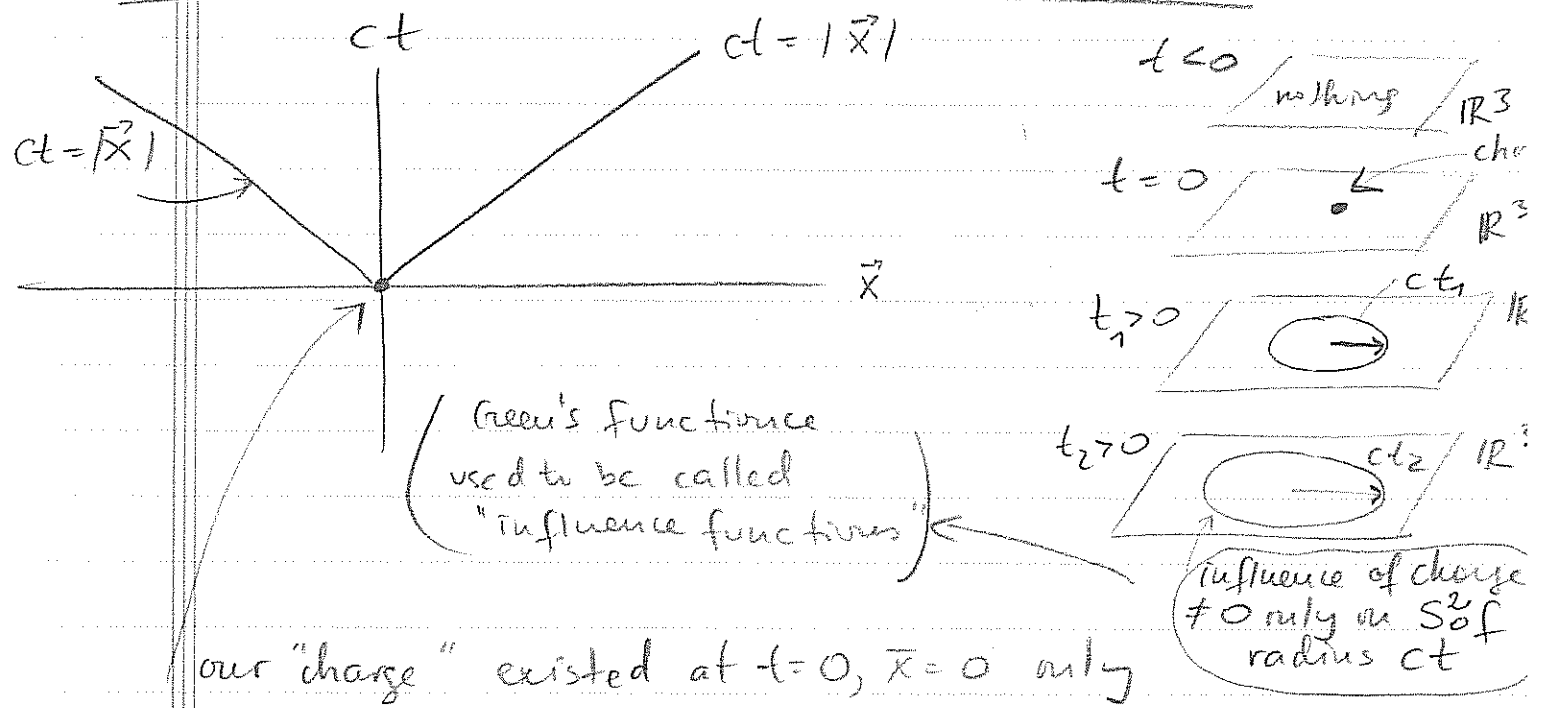 ct
ct = |x⃗|
ct = |x⃗|
x⃗
Green's functionce
used to be called
"influence functions"
our "charge" existed at t=0, x̄=0 only
t<0
nothing
ℝ3
t = 0
ℝ3
t₁>0
ct₁
t₂>0
ct₂
influence of charge
≠ 0 only on S² of
radius ct